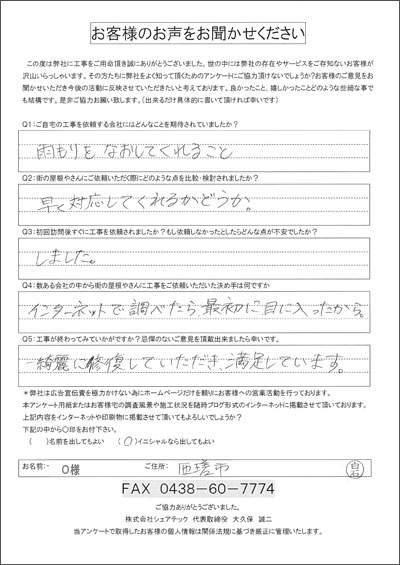 お客様のお声をお聞かせください
この度は弊社に工事をご用命頂き誠にありがとうございました。世の中には弊社の存在やサービスをご存知ないお客様が
沢山いらっしゃいます。その方たちに弊社をよく知って頂くためのアンケートにご協力頂けないでしょうか?お客様のご意見をお
聞かせいただき今後の活動に反映させていただきたいと考えております。良かったこと、嬉しかったことどのような些細な事で
も結構です。是非ご協力お願い致します。(出来るだけ具体的に書いて頂ければ幸いです)
Q1:ご自宅の工事を依頼する会社にはどんなことを期待されていましたか?
雨もりをなおしてくれること
Q2:街の屋根やさんにご依頼いただく際にどのような点を比較・検討されましたか?
早く対応してくれるかどうか。
Q3:初回訪問後すぐに工事を依頼されましたか?もし依頼しなかったとしたらどんな点が不安でしたか?
しました。
Q4:数ある会社の中から街の屋根やさんに工事をご依頼いただいた決め手は何ですか
インターネットで調べたら、最初に目に入ったから。
Q5:工事が終わってみていかがですか?忌憚のないご意見を頂戴出来ましたら幸いです。
綺麗に修復していただき、満足しています。
*弊社は広告宣伝費を極力かけない為にホームページだけを頼りにお客様への営業活動を行っております。
本アンケート用紙またはお客様宅の調査風景や施工状況を随時ブログ形式のインターネットに掲載させて頂いております。
上記内容をインターネットや印刷物に掲載させて頂いてもよろしいでしょうか?
下記の中から〇印をお付下さい。
( )名前を出してもよい (〇)イニシャルなら出してもよい
お名前:- O様 ご住所: 匝瑳市 白石
FAX 0438-60-7774
ご協力ありがとうございました。
株式会社シェアテック 代表取締役 大久保 誠二
当アンケートで取得したお客様の個人情報は関係法規に基づき厳正に管理いたします。